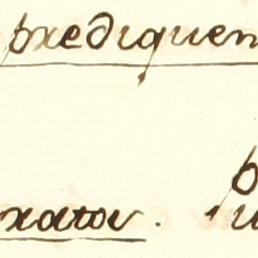 prediquen
rator.